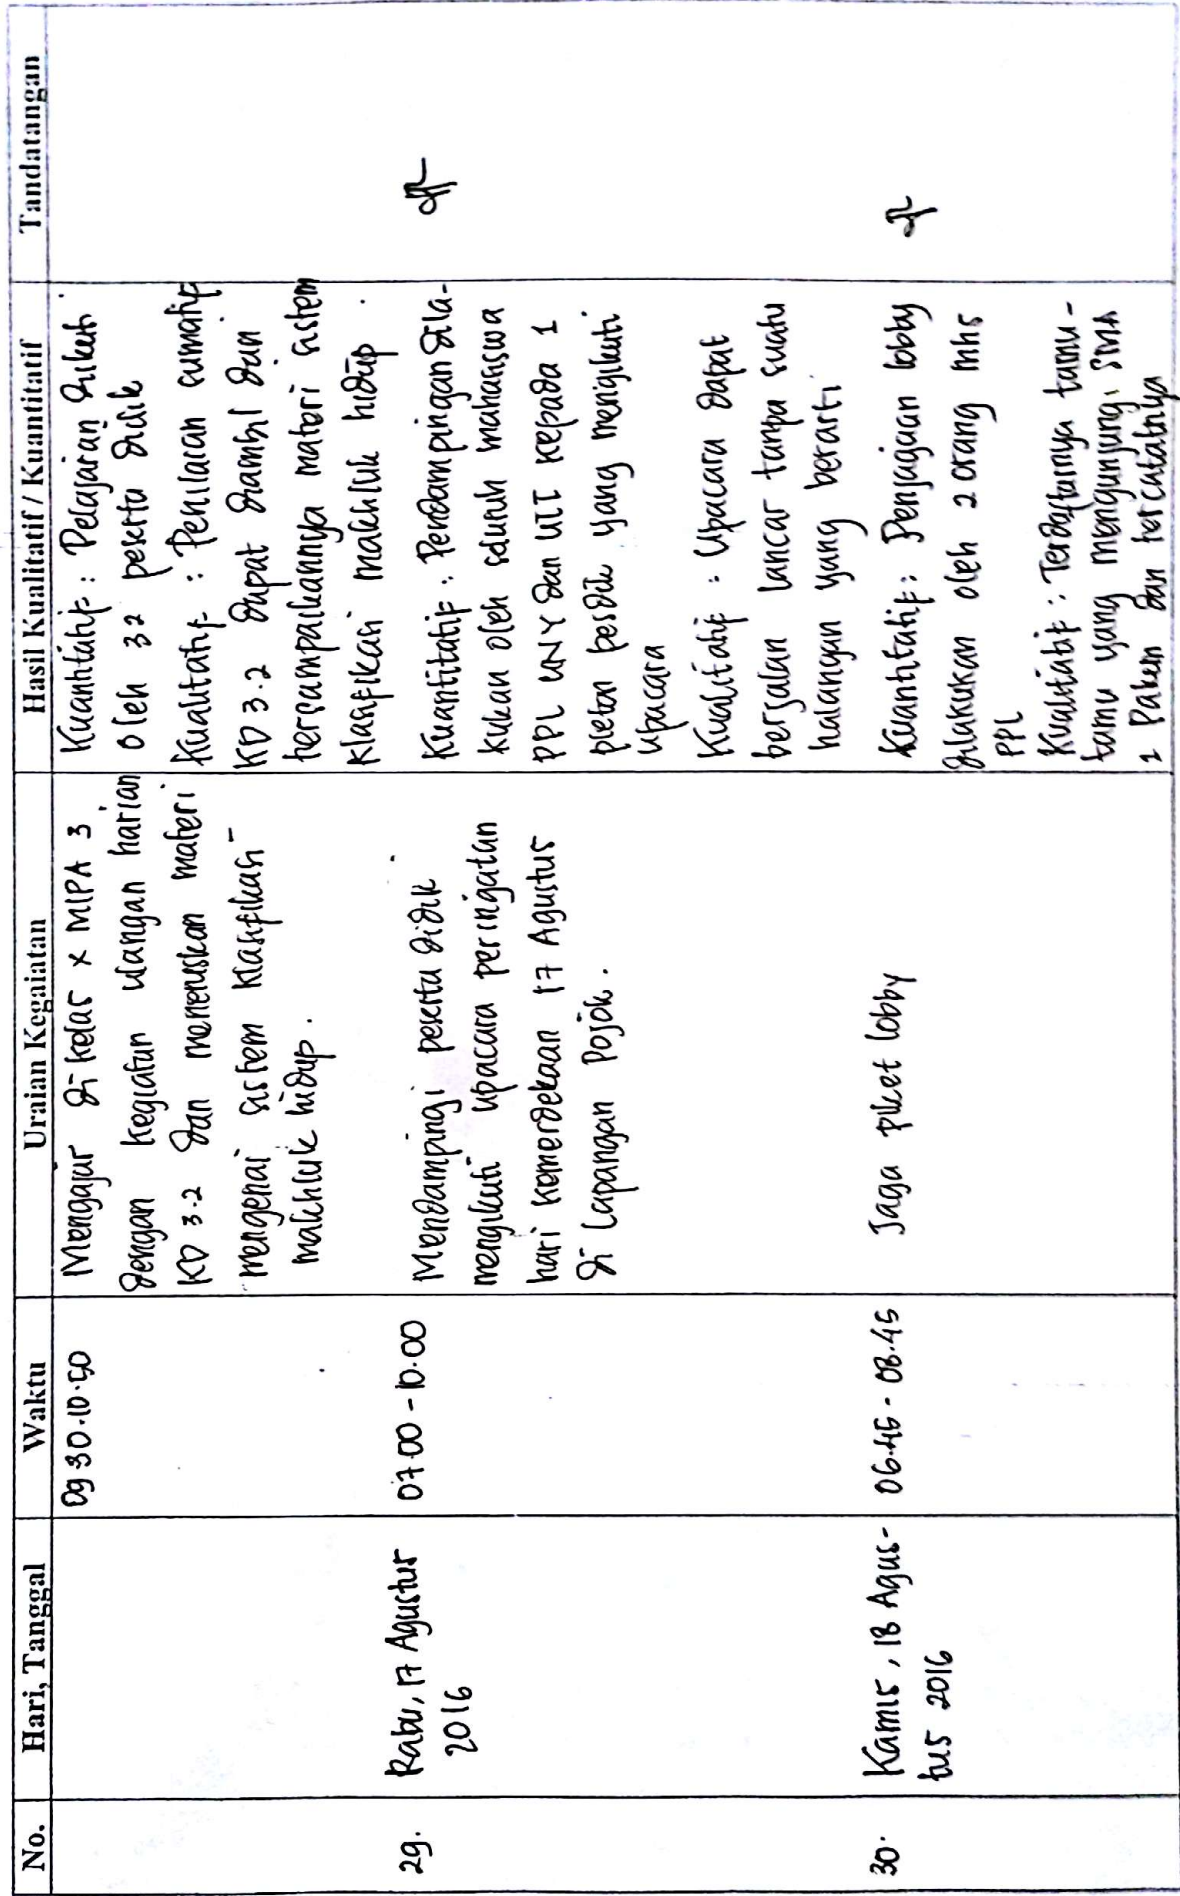 No. Hari, Tanggal Waktu Uraian Kegaiatan Hasil Kualitatif / Kuantitatif Tandatangan
09 30-10.50
Mengajar di kelas X MIPA 3
dengan kegiatan ulangan harian
KD 3.2 dan meneruskan materi
mengenai sistem klasifikasi
makhluk hidup.
Kuantitatif : Pelajaran diikuti
oleh 32 peserta didik
Kualitatif : Penilaian sumatif
KD 3.2 dapat diambil dan
tersampaikannya materi sistem
klasifikasi makhluk hidup.
29.
Rabu, 17 Agustus
2016
07.00 - 10.00
Mendampingi peserta didik
mengikuti upacara peringatan
hari kemerdekaan 17 Agustus
di Lapangan Pojok.
Kuantitatif : Pendampingan dila-
kukan oleh seluruh mahasiswa
PPL UNY dan kepada 1
pleton pesdik yang mengikuti
upacara
Kualitatif : Upacara dapat
berjalan lancar tanpa suatu
halangan yang berarti
30.
Kamis, 18 Agus-
tus 2016
06.45 - 08.45
Jaga piket lobby
Kuantitatif : Penjagaan lobby
dilakukan oleh 2 orang mhs
PPL
Kualitatif : Terdaftarnya tamu-
tamu yang mengunjungi SMA
1 Pakem dan